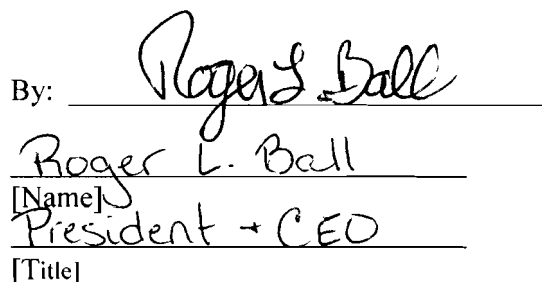 By: Roger L. Ball
Roger L. Ball
[Name]
President + CEO
[Title]